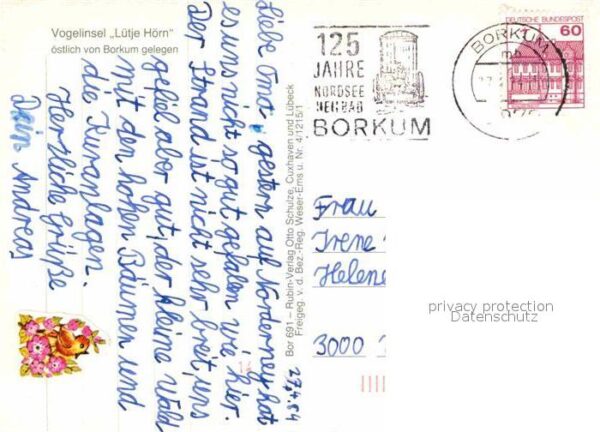 Vogelinsel „Lütje Hörn"
östlich von Borkum gelegen
Liebe Oma! gestern auf Norderney hat
es uns nicht so gut gefallen wie hier.
Der Strand ist nicht sehr breit, uns
gefiel aber gut, der kleine Wald
mit den hohen Bäumen und
die Kuranlagen.
Herzliche Grüße
Dein Andreas
27.4.84
Bor 691 – Rubin-Verlag Otto Schulze, Cuxhaven und Lübeck
Freigeg. v. d. Bez.-Reg. Weser-Ems u. Nr. 4/1215/1
125
JAHRE
NORDSEE
HEILBAD
BORKUM
BORKUM
DEUTSCHE BUNDESPOST
60
Frau
Irene
Helene
3000
privacy protection
Datenschutz